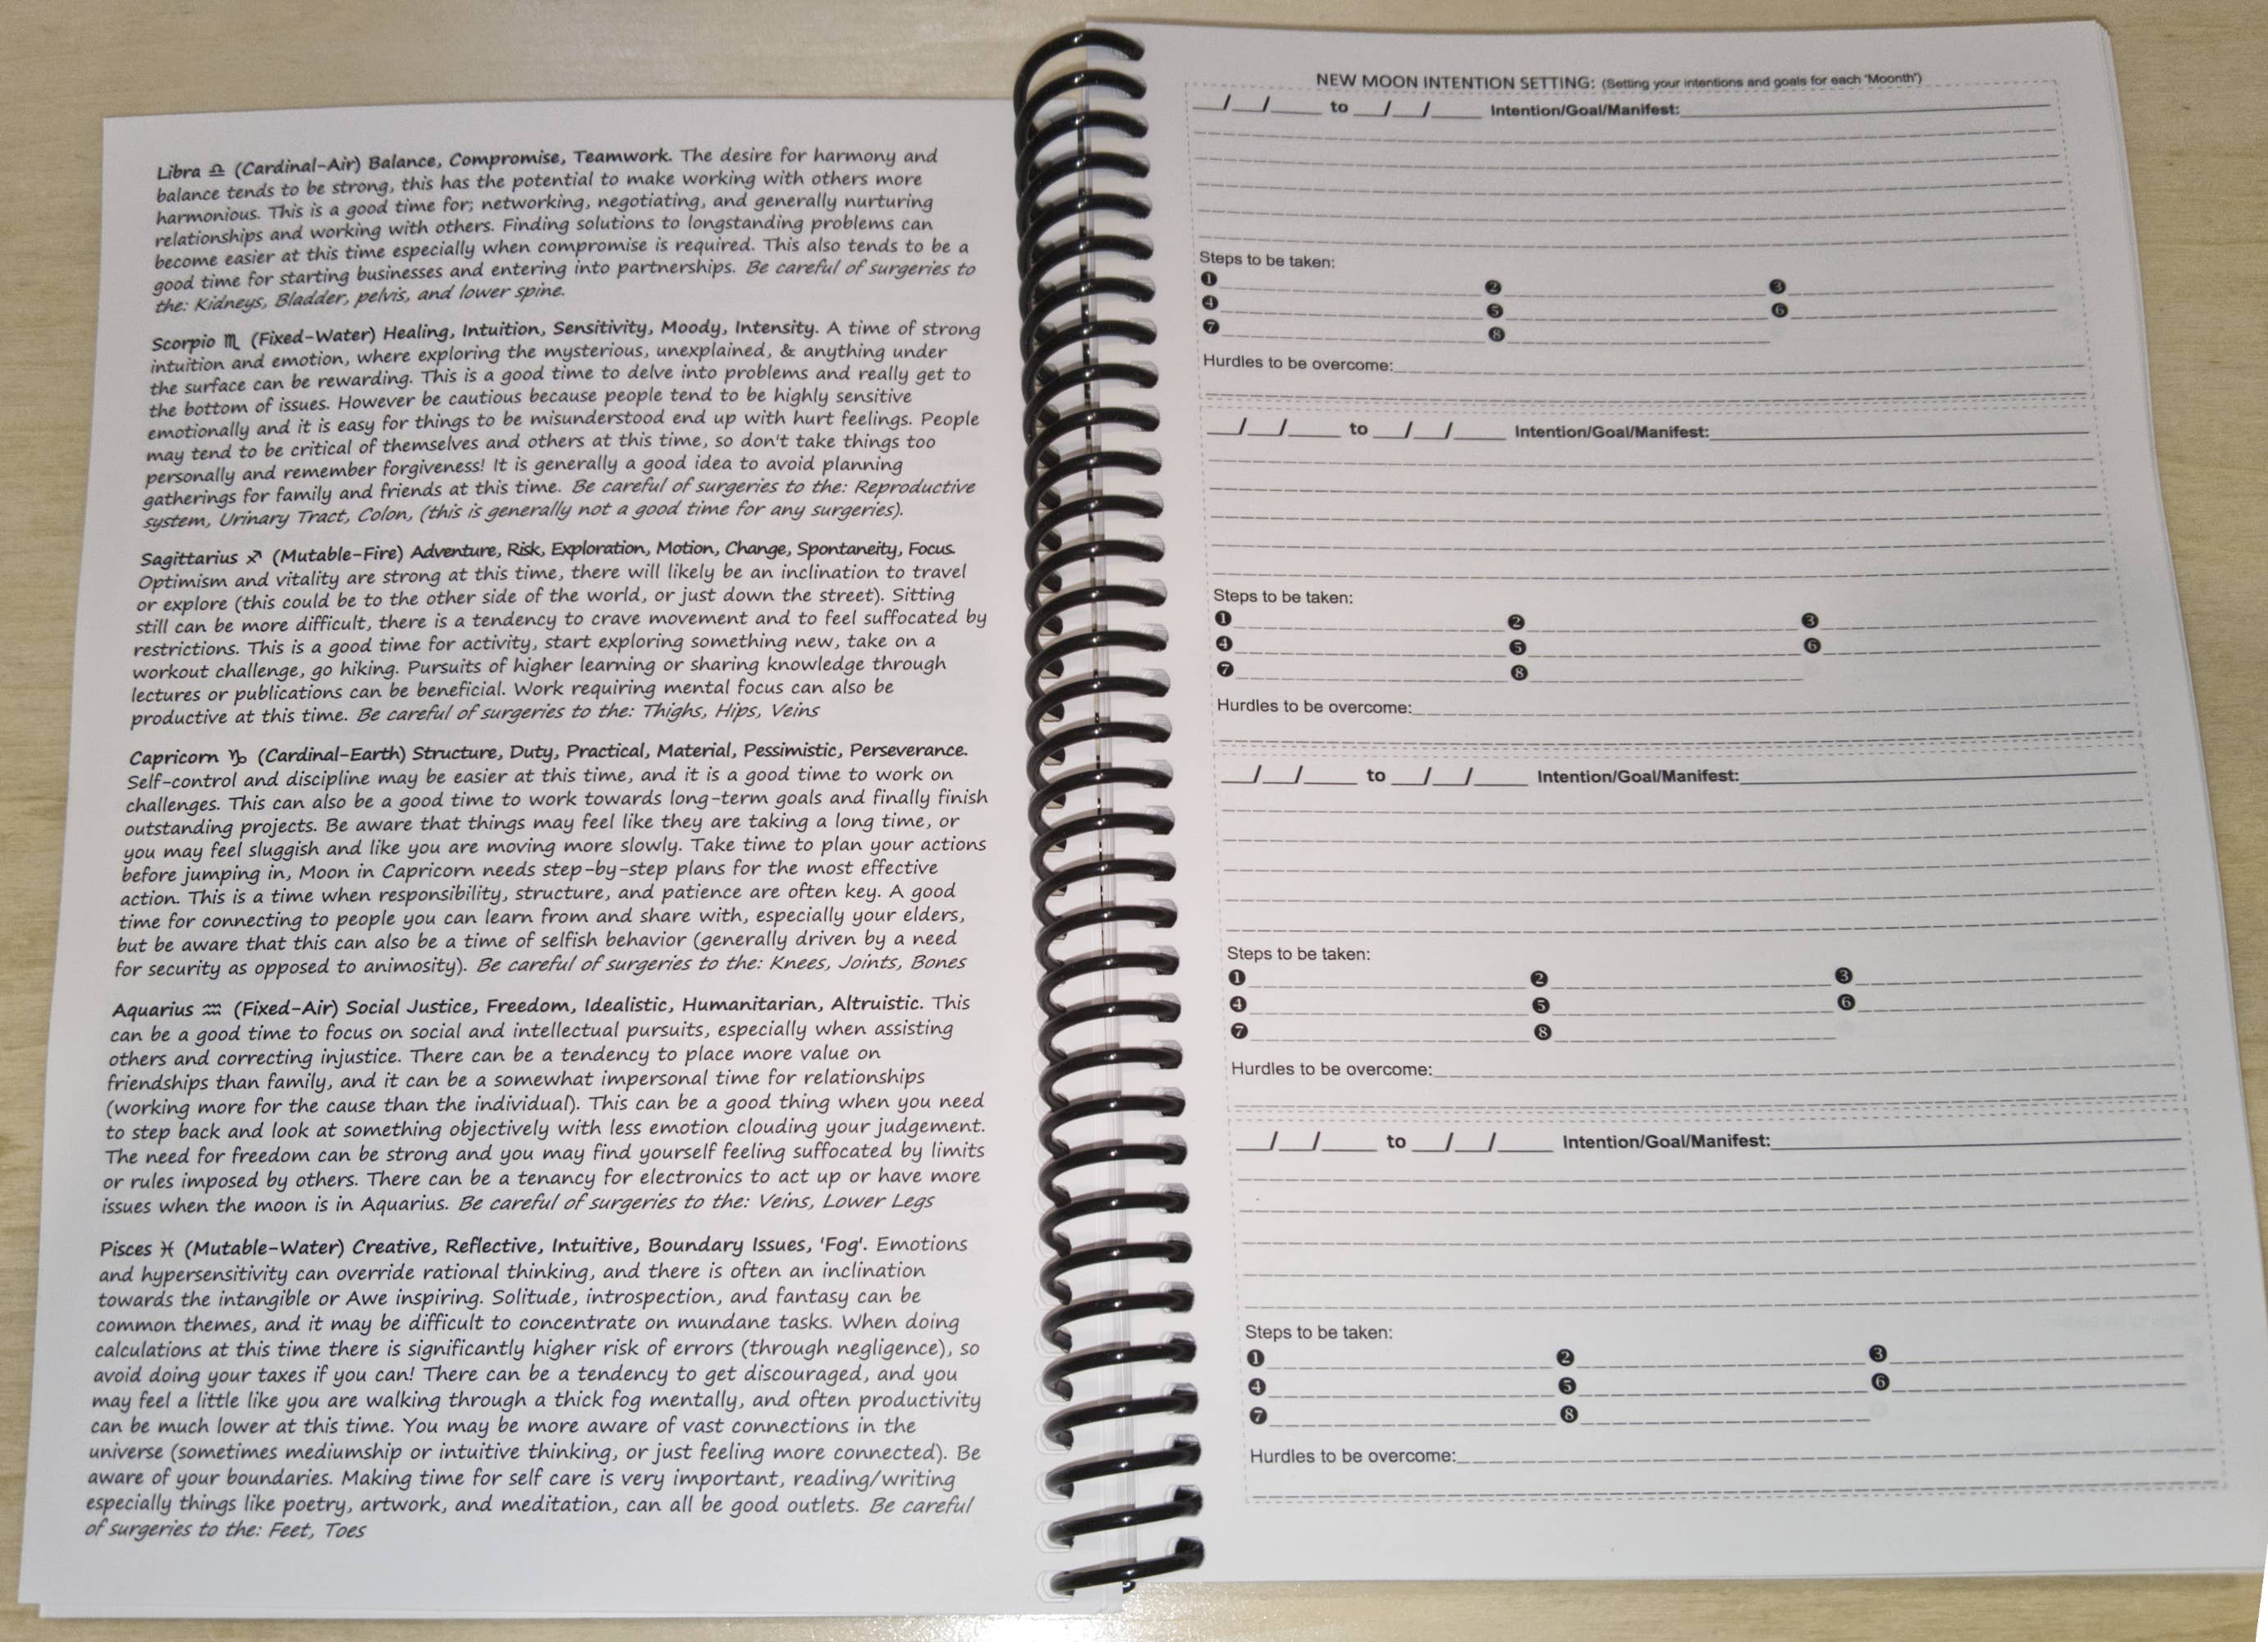 Libra ♎ (Cardinal-Air) Balance, Compromise, Teamwork. The desire for harmony and
balance tends to be strong, this has the potential to make working with others more
harmonious. This is a good time for; networking, negotiating, and generally nurturing
relationships and working with others. Finding solutions to longstanding problems can
become easier at this time especially when compromise is required. This also tends to be a
good time for starting businesses and entering into partnerships. Be careful of surgeries to
the: Kidneys, Bladder, pelvis, and lower spine.
Scorpio ♏ (Fixed-Water) Healing, Intuition, Sensitivity, Moody, Intensity. A time of strong
intuition and emotion, where exploring the mysterious, unexplained, & anything under
the surface can be rewarding. This is a good time to delve into problems and really get to
the bottom of issues. However be cautious because people tend to be highly sensitive
emotionally and it is easy for things to be misunderstood end up with hurt feelings. People
may tend to be critical of themselves and others at this time, so don't take things too
personally and remember forgiveness! It is generally a good idea to avoid planning
gatherings for family and friends at this time. Be careful of surgeries to the: Reproductive
system, Urinary Tract, Colon, (this is generally not a good time for any surgeries).
Sagittarius ♐ (Mutable-Fire) Adventure, Risk, Exploration, Motion, Change, Spontaneity, Focus.
Optimism and vitality are strong at this time, there will likely be an inclination to travel
or explore (this could be to the other side of the world, or just down the street). Sitting
still can be more difficult, there is a tendency to crave movement and to feel suffocated by
restrictions. This is a good time for activity, start exploring something new, take on a
workout challenge, go hiking. Pursuits of higher learning or sharing knowledge through
lectures or publications can be beneficial. Work requiring mental focus can also be
productive at this time. Be careful of surgeries to the: Thighs, Hips, Veins
Capricorn ♑ (Cardinal-Earth) Structure, Duty, Practical, Material, Pessimistic, Perseverance.
Self-control and discipline may be easier at this time, and it is a good time to work on
challenges. This can also be a good time to work towards long-term goals and finally finish
outstanding projects. Be aware that things may feel like they are taking a long time, or
you may feel sluggish and like you are moving more slowly. Take time to plan your actions
before jumping in, Moon in Capricorn needs step-by-step plans for the most effective
action. This is a time when responsibility, structure, and patience are often key. A good
time for connecting to people you can learn from and share with, especially your elders,
but be aware that this can also be a time of selfish behavior (generally driven by a need
for security as opposed to animosity). Be careful of surgeries to the: Knees, Joints, Bones
Aquarius ♒ (Fixed-Air) Social Justice, Freedom, Idealistic, Humanitarian, Altruistic. This
can be a good time to focus on social and intellectual pursuits, especially when assisting
others and correcting injustice. There can be a tendency to place more value on
friendships than family, and it can be a somewhat impersonal time for relationships
(working more for the cause than the individual). This can be a good thing when you need
to step back and look at something objectively with less emotion clouding your judgement.
The need for freedom can be strong and you may find yourself feeling suffocated by limits
or rules imposed by others. There can be a tenancy for electronics to act up or have more
issues when the moon is in Aquarius. Be careful of surgeries to the: Veins, Lower Legs
Pisces ♓ (Mutable-Water) Creative, Reflective, Intuitive, Boundary Issues, 'Fog'. Emotions
and hypersensitivity can override rational thinking, and there is often an inclination
towards the intangible or Awe inspiring. Solitude, introspection, and fantasy can be
common themes, and it may be difficult to concentrate on mundane tasks. When doing
calculations at this time there is significantly higher risk of errors (through negligence), so
avoid doing your taxes if you can! There can be a tendency to get discouraged, and you
may feel a little like you are walking through a thick fog mentally, and often productivity
can be much lower at this time. You may be more aware of vast connections in the
universe (sometimes mediumship or intuitive thinking, or just feeling more connected). Be
aware of your boundaries. Making time for self care is very important, reading/writing
especially things like poetry, artwork, and meditation, can all be good outlets. Be careful
of surgeries to the: Feet, Toes
NEW MOON INTENTION SETTING: (Setting your intentions and goals for each 'Moonth')
__/__/____ to __/__/____ Intention/Goal/Manifest:
Steps to be taken:
❶ ❷ ❸
❹ ❺ ❻
❼ ❽
Hurdles to be overcome:
__/__/____ to __/__/____ Intention/Goal/Manifest:
Steps to be taken:
❶ ❷ ❸
❹ ❺ ❻
❼ ❽
Hurdles to be overcome:
__/__/____ to __/__/____ Intention/Goal/Manifest:
Steps to be taken:
❶ ❷ ❸
❹ ❺ ❻
❼ ❽
Hurdles to be overcome:
__/__/____ to __/__/____ Intention/Goal/Manifest:
Steps to be taken:
❶ ❷ ❸
❹ ❺ ❻
❼ ❽
Hurdles to be overcome: